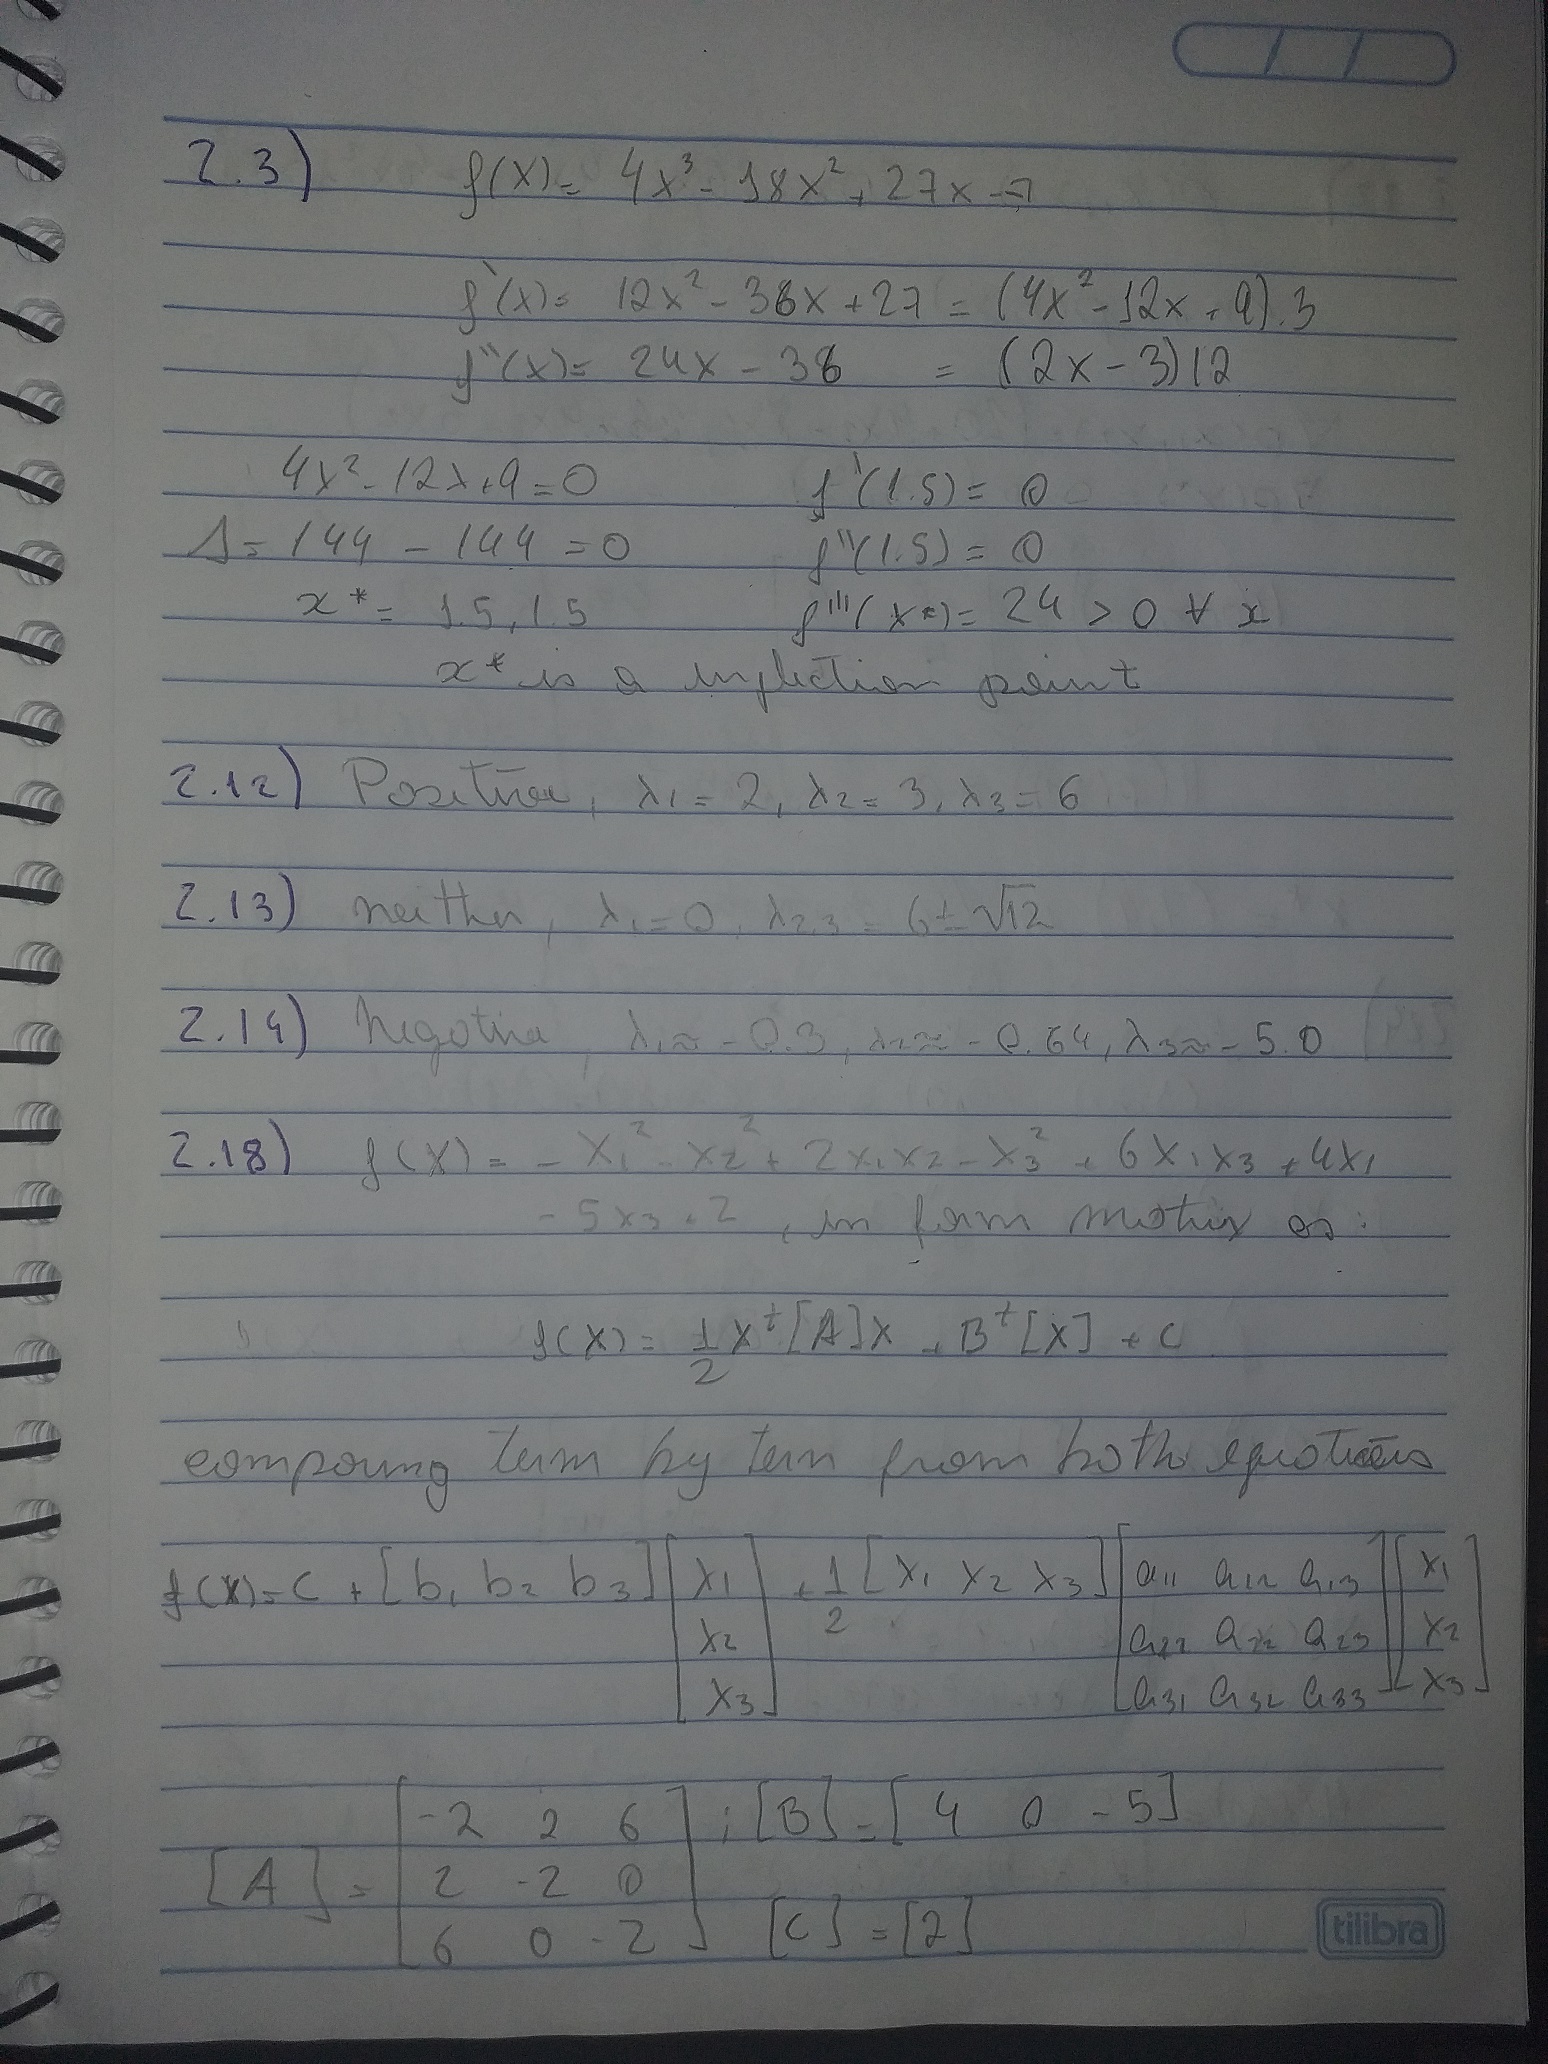 2.3) f(x) = 4x³ - 18x² + 27x - 7
f'(x) = 12x² - 36x + 27 = (4x² - 12x + 9).3
f''(x) = 24x - 36 = (2x - 3)12
4x² - 12x + 9 = 0 f'(1.5) = 0
Δ = 144 - 144 = 0 f''(1.5) = 0
x* = 1.5, 1.5 f'''(x*) = 24 > 0 ∀ x
x* is a inflection point
2.12) Positive, λ1 = 2, λ2 = 3, λ3 = 6
2.13) neither, λ1 = 0, λ2,3 = 6 ± √12
2.14) Negative, λ1 ≈ -0.3, λ2 ≈ -0.64, λ3 ≈ -5.0
2.18) f(X) = - x1² - x2² + 2x1x2 - x3² + 6x1x3 + 4x1
- 5x3 + 2, in form matrix as:
f(X) = 1/2 X^t [A]X + B^t [X] + C
comparing term by term from both equations
f(X) = C + [b1 b2 b3] [x1 + 1/2 [x1 x2 x3] [a11 a12 a13] [x1
x2 a22 a22 a23 x2
x3] a31 a32 a33] x3]
[A] = [-2 2 6 ; [B] = [4 0 -5]
2 -2 0
6 0 -2] [C] = [2]
tilibra